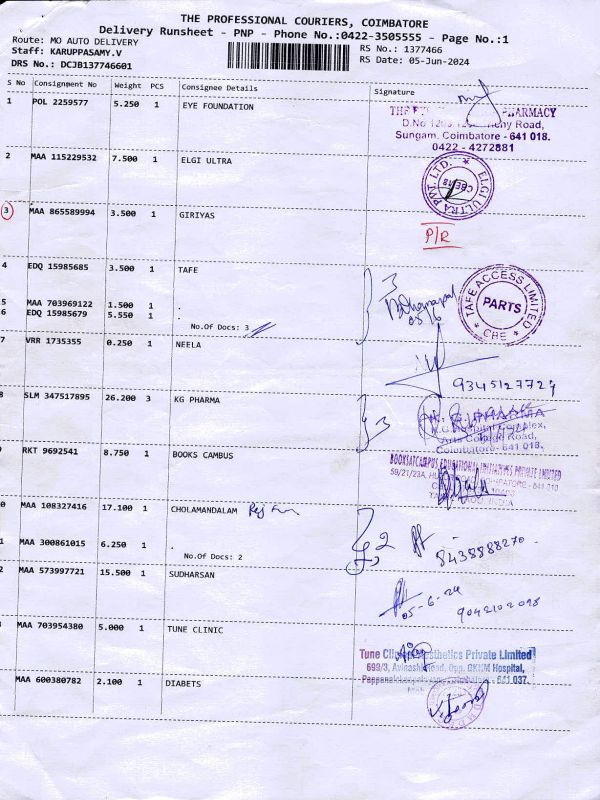 THE PROFESSIONAL COURIERS, COIMBATORE
Delivery Runsheet - PNP - Phone No.:0422-3505555 - Page No.:1
Route: MO AUTO DELIVERY
Staff: KARUPPASAMY.V
DRS No.: DCJB137746601
RS No.: 1377466
RS Date: 05-Jun-2024
S No Consignment No Weight PCS Consignee Details Signature
1 POL 2259577 5.250 1 EYE FOUNDATION
PHARMACY
Road,
Sungam, Coimbatore - 641 018.
0422 - 4272881
2 MAA 115229532 7.500 1 ELGI ULTRA
ELGI ULTRA PVT. LTD.
3 MAA 865589994 3.500 1 GIRIYAS
P/R
4 EDQ 15985685 3.500 1 TAFE
3
TAFE ACCESS LIMITED
PARTS
5 MAA 703969122 1.500 1
6 EDQ 15985679 5.550 1
No.Of Docs: 3
7 VRR 1735355 0.250 1 NEELA
9345127729
8 SLM 347517895 26.200 3 KG PHARMA
3
K.G. PHARMA
K.G. Hospital Complex,
Arts College Road,
Coimbatore - 641 018.
9 RKT 9692541 8.750 1 BOOKS CAMBUS
BOOKSATCAMPUS EDUCATIONAL INITIATIVES PRIVATE LIMITED
COIMBATORE - 641 018
INDIA
0 MAA 108327416 17.100 1 CHOLAMANDALAM
2
8438888270
1 MAA 300861015 6.250 1
No.Of Docs: 2
2 MAA 573997721 15.500 1 SUDHARSAN
05-6-24
9042102098
MAA 703954380 5.000 1 TUNE CLINIC
Tune Clinic Aesthetics Private Limited
699/3, Avinashi Road, Opp. GKNM Hospital,
Coimbatore - 641 037.
MAA 600380782 2.100 1 DIABETS